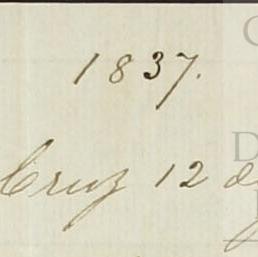 1837.
Cruz 12 d